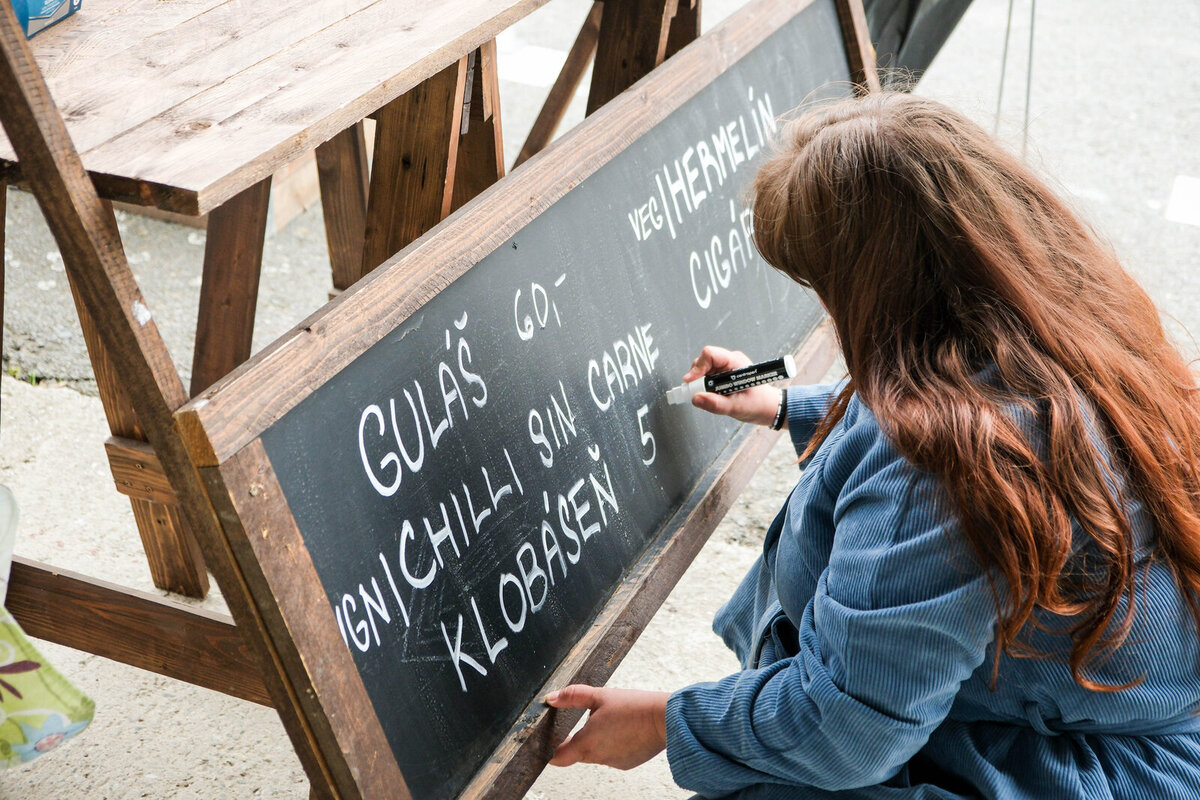 GULÁŠ 60,-
VGN|CHILLI SIN CARNE
KLOBÁSEŇ 5
VEG|HERMELÍN
CIGÁR